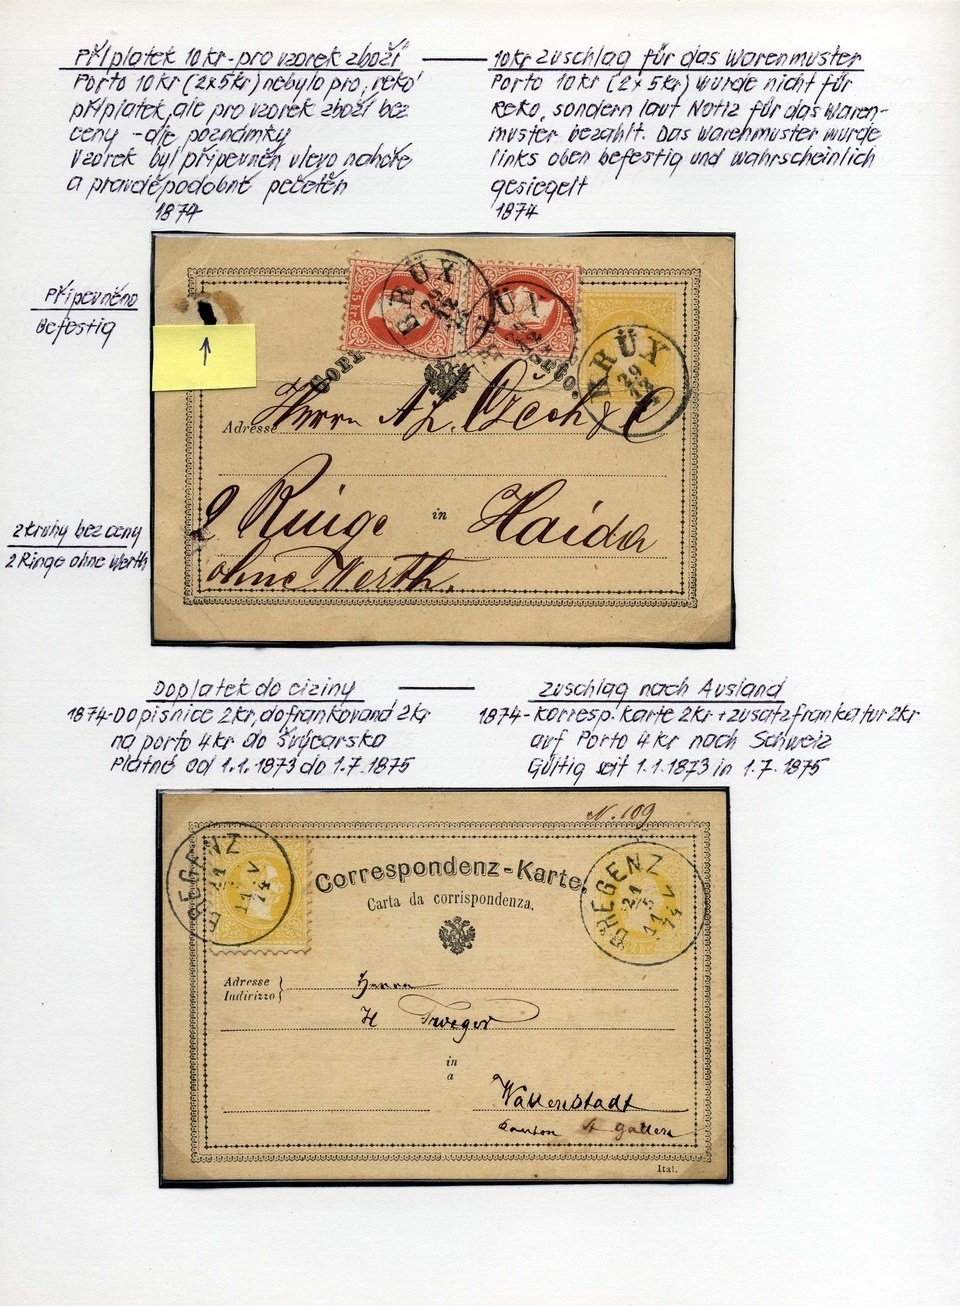 Příplatek 10 kr - pro vzorek zboží
Porto 10 kr (2x5kr) nebylo pro reko
příplatek, ale pro vzorek zboží bez
ceny - dle poznámky
vzorek byl připevněn vlevo nahoře
a pravděpodobně pečetěn
1874
10kr Zuschlag für das Warenmuster
Porto 10kr (2x5kr) wurde nicht für
Reko, sondern laut Notiz für das Waren-
muster bezahlt. Das Warenmuster wurde
links oben befestig und wahrscheinlich
gesiegelt
1874
Připevněno
Befestig
↑
5 kr.
BRÜX
29
12
BRÜX
29
12
Corr
arto.
Adresse
Herrn Az. Czech & C
2 Ringe in Haida
ohne Werth.
2 kruhy bez ceny
2 Ringe ohne Werth
Doplatek do ciziny
1874 - Dopisnice 2kr, dofrankovaná 2kr
na porto 4kr do Švýcarska
Platné od 1.1.1873 do 1.7.1875
Zuschlag nach Ausland
1874 - Korresp. Karte 2kr + Zusatzfrankatur 2kr
auf Porto 4kr nach Schweiz
Gültig seit 1.1.1873 in 1.7.1875
N. 109
BREGENZ
21
5
74
BREGENZ
21
5
74
Correspondenz-Karte.
Carta da corrispondenza.
Adresse
Indirizzo
Herrn
H
in
a
Wallenstadt
Canton St gallen
Ital.